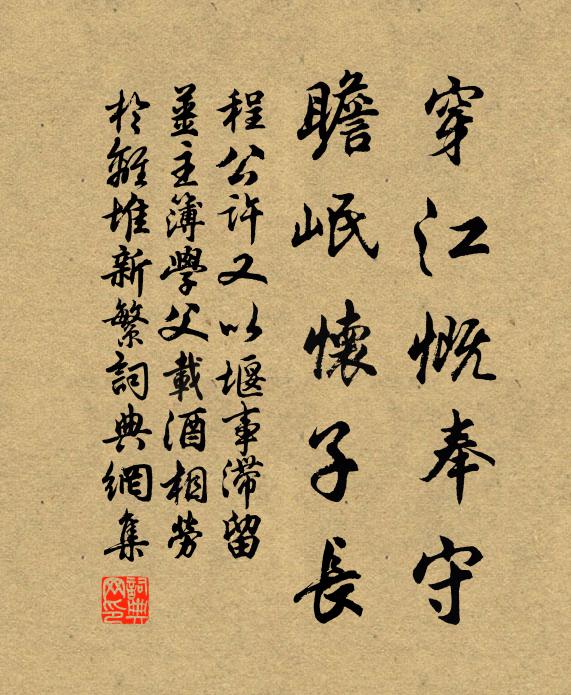 穿江慨奉守
瞻岷懷子長
程公許又以堰事滯留
姜主薄學父載酒相勞
於離堆新繁詞典網集
詞典网印